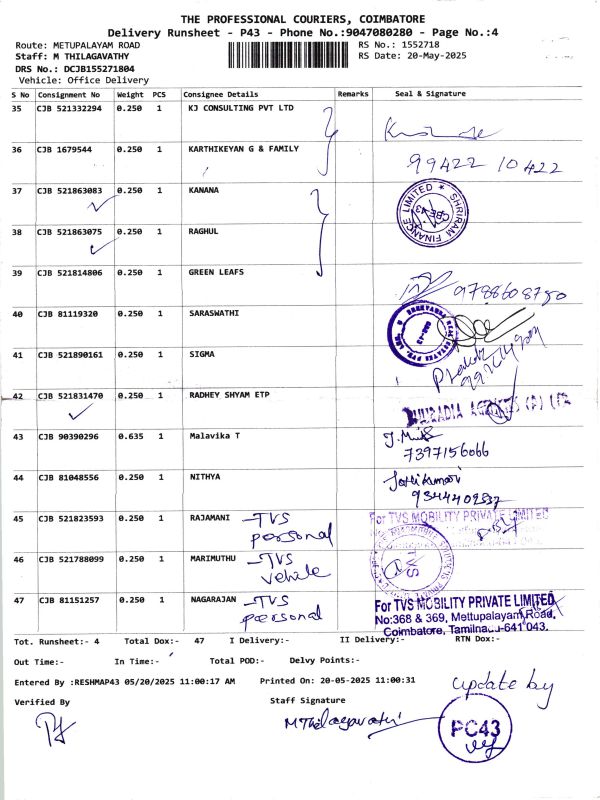 THE PROFESSIONAL COURIERS, COIMBATORE
Delivery Runsheet - P43 - Phone No.:9047080280 - Page No.:4
Route: METUPALAYAM ROAD
RS No.: 1552718
Staff: M THILAGAVATHY
RS Date: 20-May-2025
DRS No.: DCJB155271804
Vehicle: Office Delivery
S No Consignment No Weight PCS Consignee Details Remarks Seal & Signature
35 CJB 521332294 0.250 1 KJ CONSULTING PVT LTD
36 CJB 1679544 0.250 1 KARTHIKEYAN G & FAMILY 99422 10422
37 CJB 521863083 0.250 1 KANANA
SHRIRAM FINANCE LIMITED
CBE-43
38 CJB 521863075 0.250 1 RAGHUL
39 CJB 521814806 0.250 1 GREEN LEAFS 9788608750
40 CJB 81119320 0.250 1 SARASWATHI
41 CJB 521890161 0.250 1 SIGMA
42 CJB 521831470 0.250 1 RADHEY SHYAM ETP
43 CJB 90390296 0.635 1 Malavika T
7397156066
44 CJB 81048556 0.250 1 NITHYA
45 CJB 521823593 0.250 1 RAJAMANI - TVS personal
For TVS MOBILITY PRIVATE LIMITED
46 CJB 521788099 0.250 1 MARIMUTHU - TVS vehicle
TVS
47 CJB 81151257 0.250 1 NAGARAJAN - TVS personal
For TVS MOBILITY PRIVATE LIMITED
No:368 & 369, Mettupalayam Road,
Coimbatore, Tamilnadu-641 043.
Tot. Runsheet:- 4 Total Dox:- 47 I Delivery:- II Delivery:- RTN Dox:-
Out Time:- In Time:- Total POD:- Delvy Points:-
Entered By :RESHMAP43 05/20/2025 11:00:17 AM Printed On: 20-05-2025 11:00:31
update by
Verified By Staff Signature
M Thilagavathi
PC43